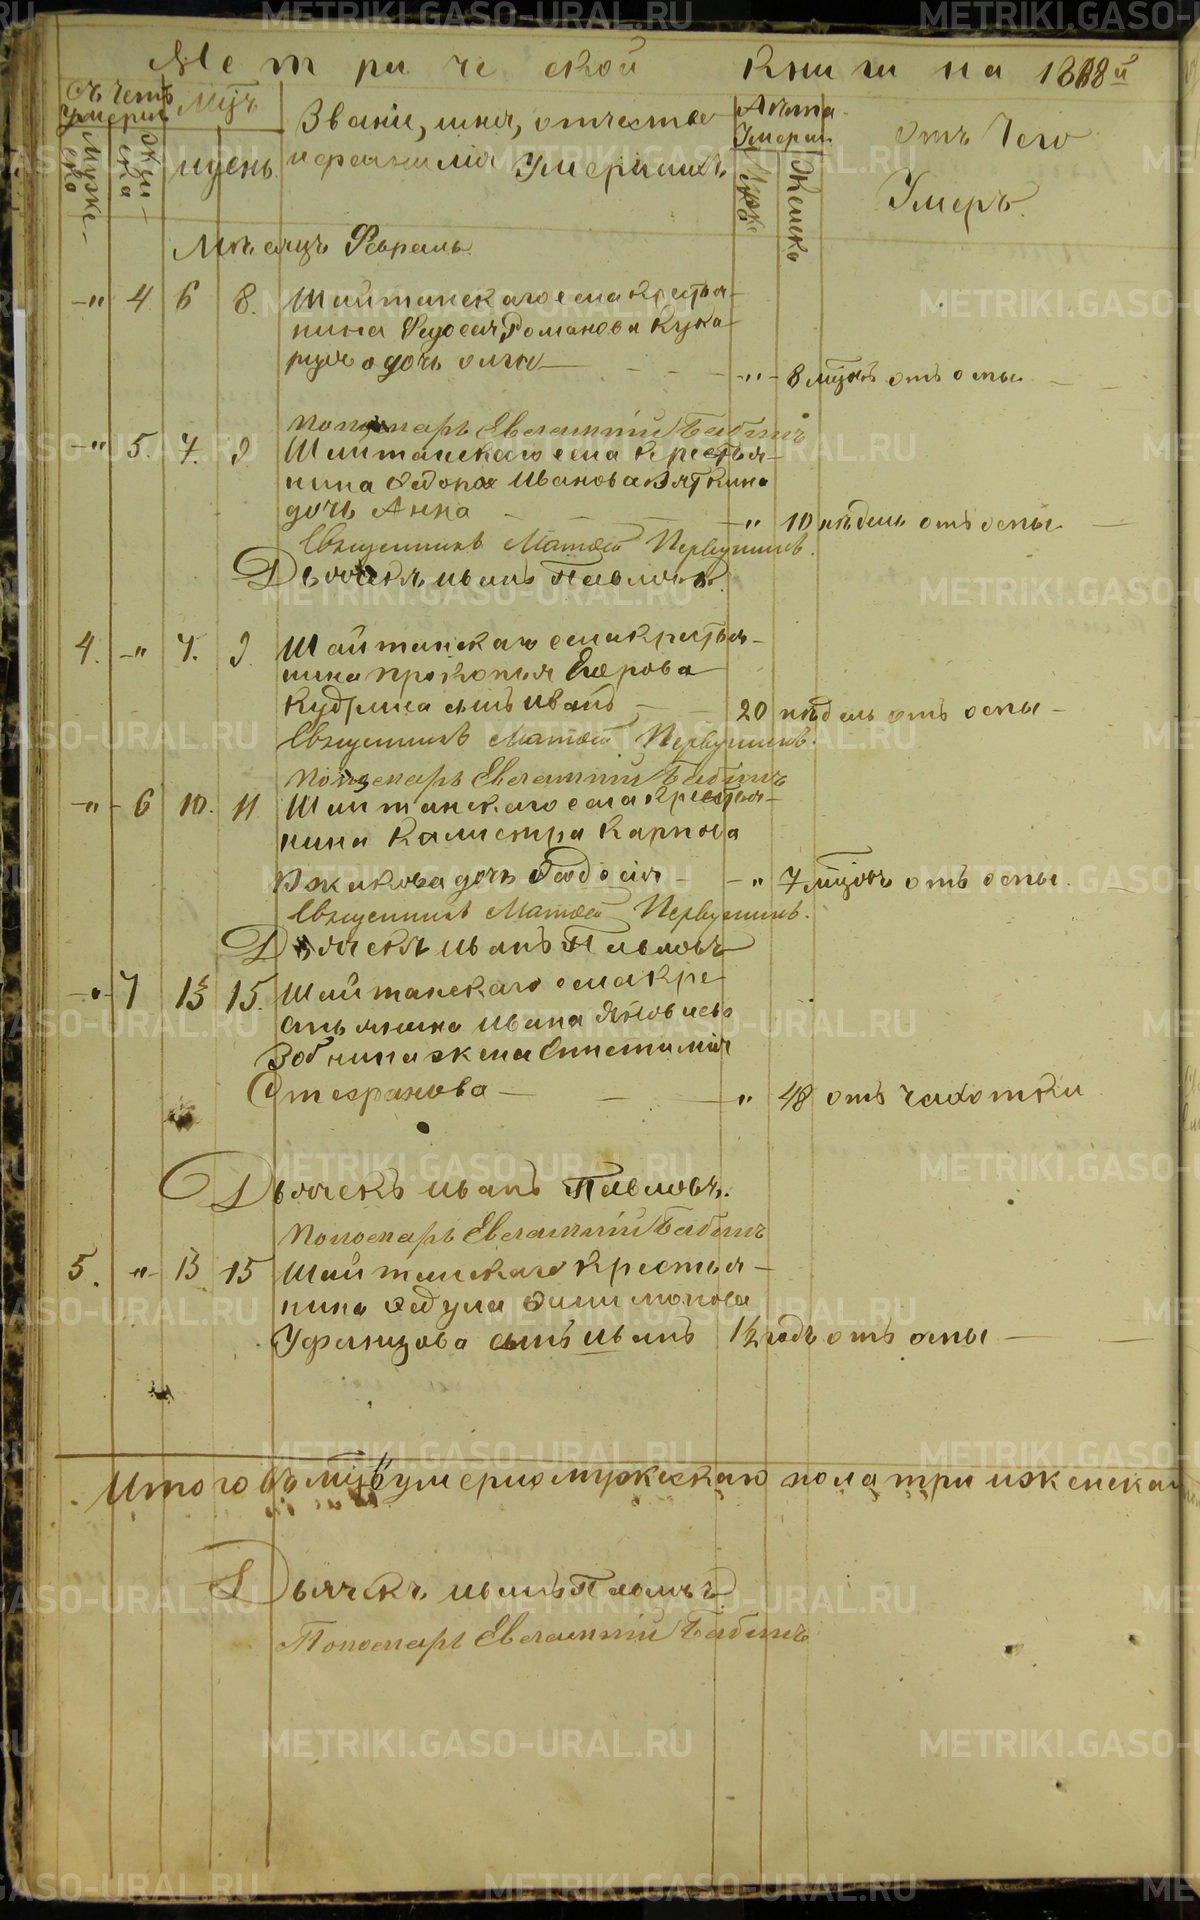 Метрической книги на 1868й
Счетъ умерш
Мцъ
и день
Мужеска
Женска
Званіе, имя, отчество
и фамилія Умершихъ
Лѣта Умерш
Мужс
Женска
отъ Чего
Умеръ.
Мѣсяцъ Февраль
-"- 4 6 8. Шайтанскаго села крестья-
нина Федосея Романова
дочь - - - " - 8 мцовъ отъ оспы
Пономарь Евлампій Бабинъ
-" 5. 7. 9 Шайтанскаго села крестья-
нина Федора Иванова Вяткина
дочь Анна - - - " 10 недель отъ оспы
Священникъ Матѳей Первушинъ.
Дьячекъ Иванъ Павловъ.
4. -" 7. 9. Шайтанскаго села крестья-
нина Прокопья Егорова
сынъ Иванъ - - 20 недель отъ оспы -
Священникъ Матѳей Первушинъ.
Пономарь Евлампій Бабинъ
-"- 6 10. 11 Шайтанскаго села крестья-
нина Калистра Карпова
дочь Федосія - - " 7 мцовъ отъ оспы.
Священникъ Матѳей Первушинъ.
Дьячекъ Иванъ Павловъ
-"- 7 13 15. Шайтанскаго села кре-
стьянина Ивана Яковлева
Зобнина жена
Стефанова - - - " 48 отъ чахотки
Дьячекъ Иванъ Павловъ.
Пономарь Евлампій Бабинъ
5. "- 13 15 Шайтанскаго крестья-
нина Федула Филимонова
Уфимцова сынъ Иванъ 1½ годъ отъ оспы
Итого въ мцѣ умерло мужескаго пола три и женскаго
Дьячекъ Иванъ Павловъ.
Пономарь Евлампій Бабинъ
METRIKI.GASO-URAL.RU